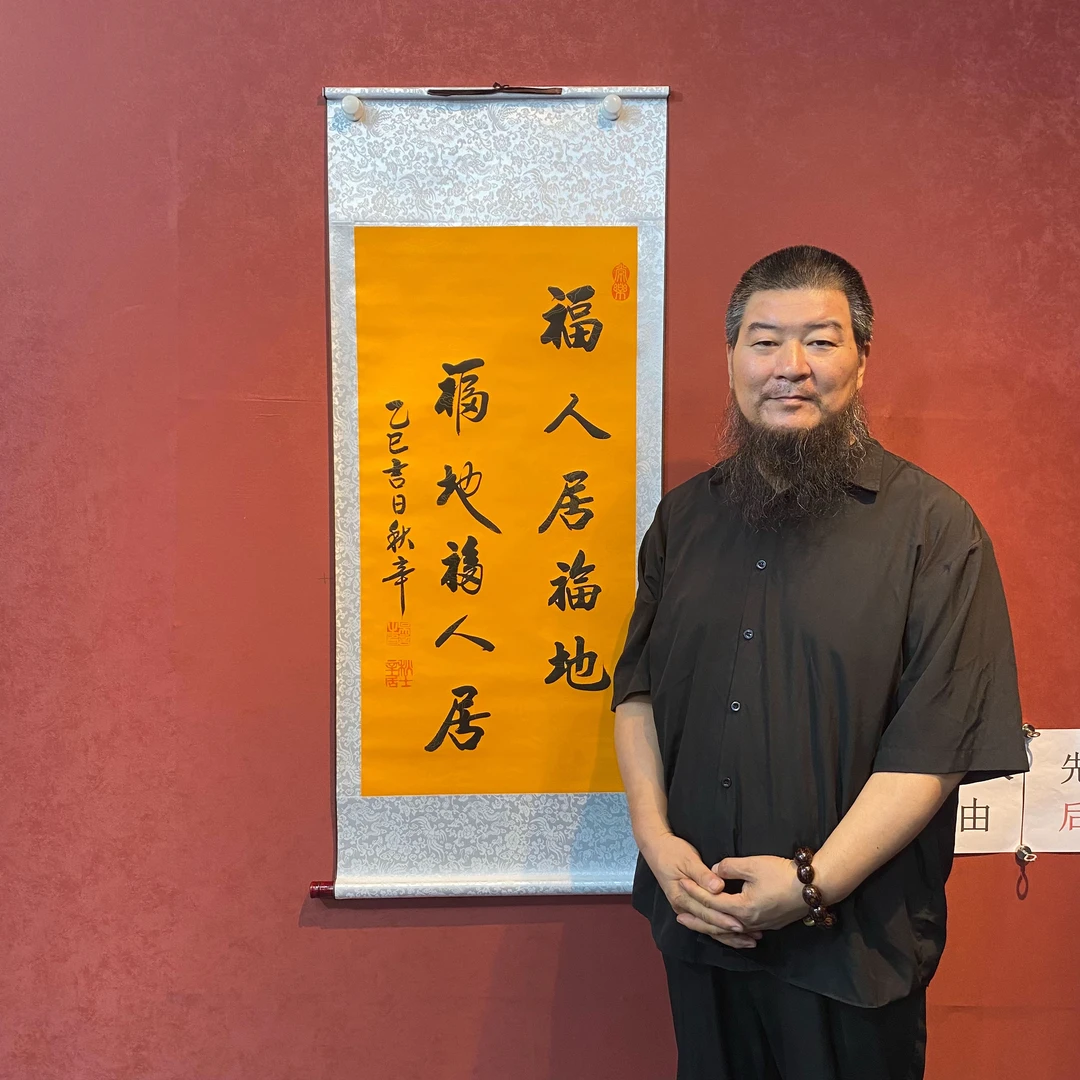 福人居福地
福地福人居
乙巳吉日秋辛
秋士
辛居
由
先
后